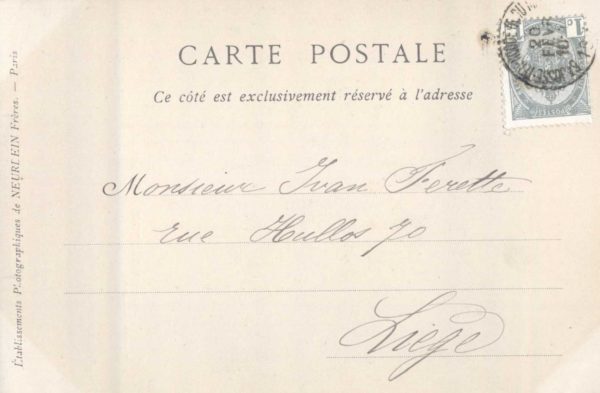 CARTE POSTALE
Ce côté est exclusivement réservé à l'adresse
Monsieur Ivan Ferette
rue Hullos 70
Liège
Établissements Photographiques de NEURLEIN Frères. — Paris